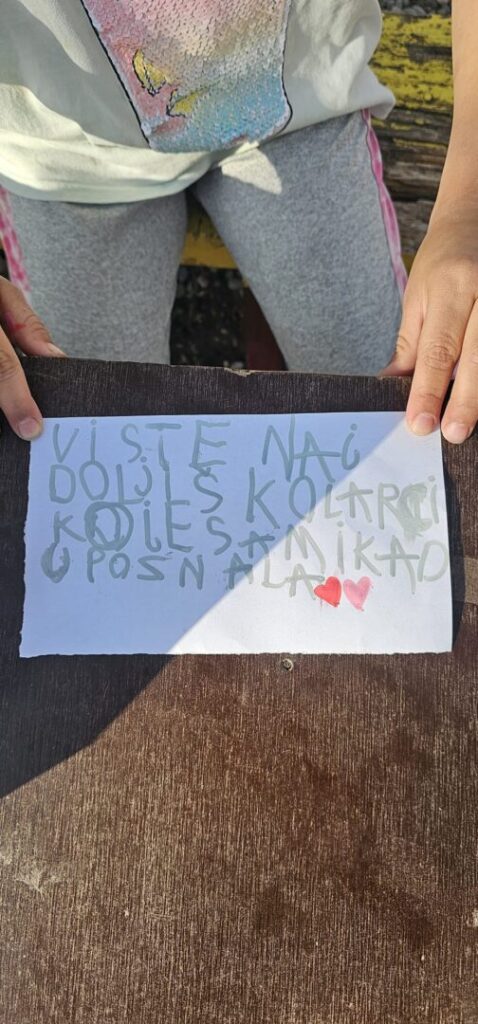 ViSTE NAi
DOLJiŠ KOLARCi
KOiESAMiKAD
UPOSNALA